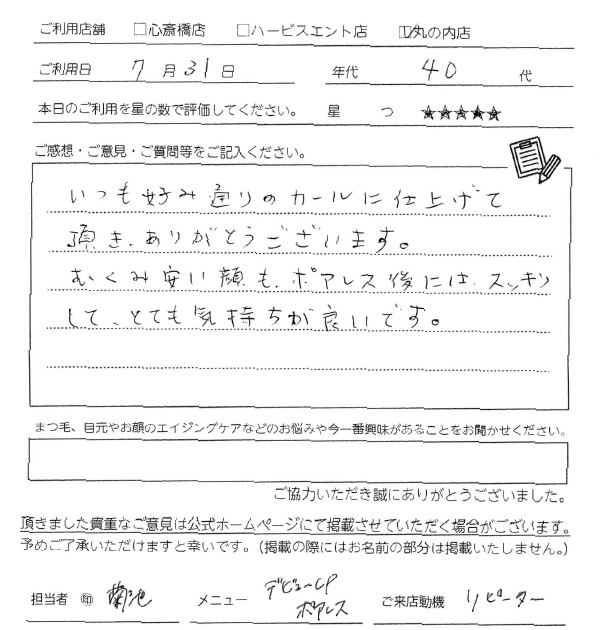 ご利用店舗 □心斎橋店 □ハービスエント店 ☑丸の内店
ご利用日 7月31日 年代 40代
本日のご利用を星の数で評価してください。 星 つ ★★★★★
ご感想・ご意見・ご質問等をご記入ください。
いつも好み通りのカールに仕上げて
頂き、ありがとうございます。
むくみ安い顔も、ポアレス後には、スッキリ
して、とても気持ちが良いです。
まつ毛、目元やお顔のエイジングケアなどのお悩みや今一番興味があることをお聞かせください。
ご協力いただき誠にありがとうございました。
頂きました貴重なご意見は公式ホームページにて掲載させていただく場合がございます。
予めご了承いただけますと幸いです。（掲載の際にはお名前の部分は掲載いたしません。）
デビューLP
担当者 ㊞ 菊池 メニュー ポアレス ご来店動機 リピーター